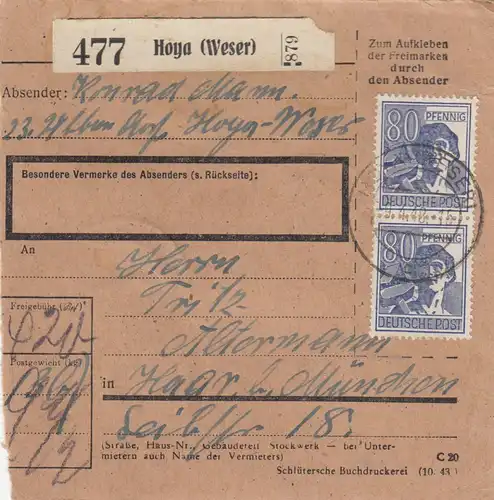 477 Hoya (Weser) 879
Zum Aufkleben
der Freimarken
durch
den Absender
Absender: Konrad Mann.
Hoya-Weser
80 PFENNIG
DEUTSCHE POST
80 PFENNIG
DEUTSCHE POST
Besondere Vermerke des Absenders (s. Rückseite):
An
Herrn
Fritz
Altermann
Freigebühr
Postgewicht (kg)
in Haar b. München
18.
(Straße, Haus-Nr., Gebäudeteil Stockwerk — bei Unter-
mietern auch Name des Vermieters)
C 20
Schlütersche Buchdruckerei (10. 43.)